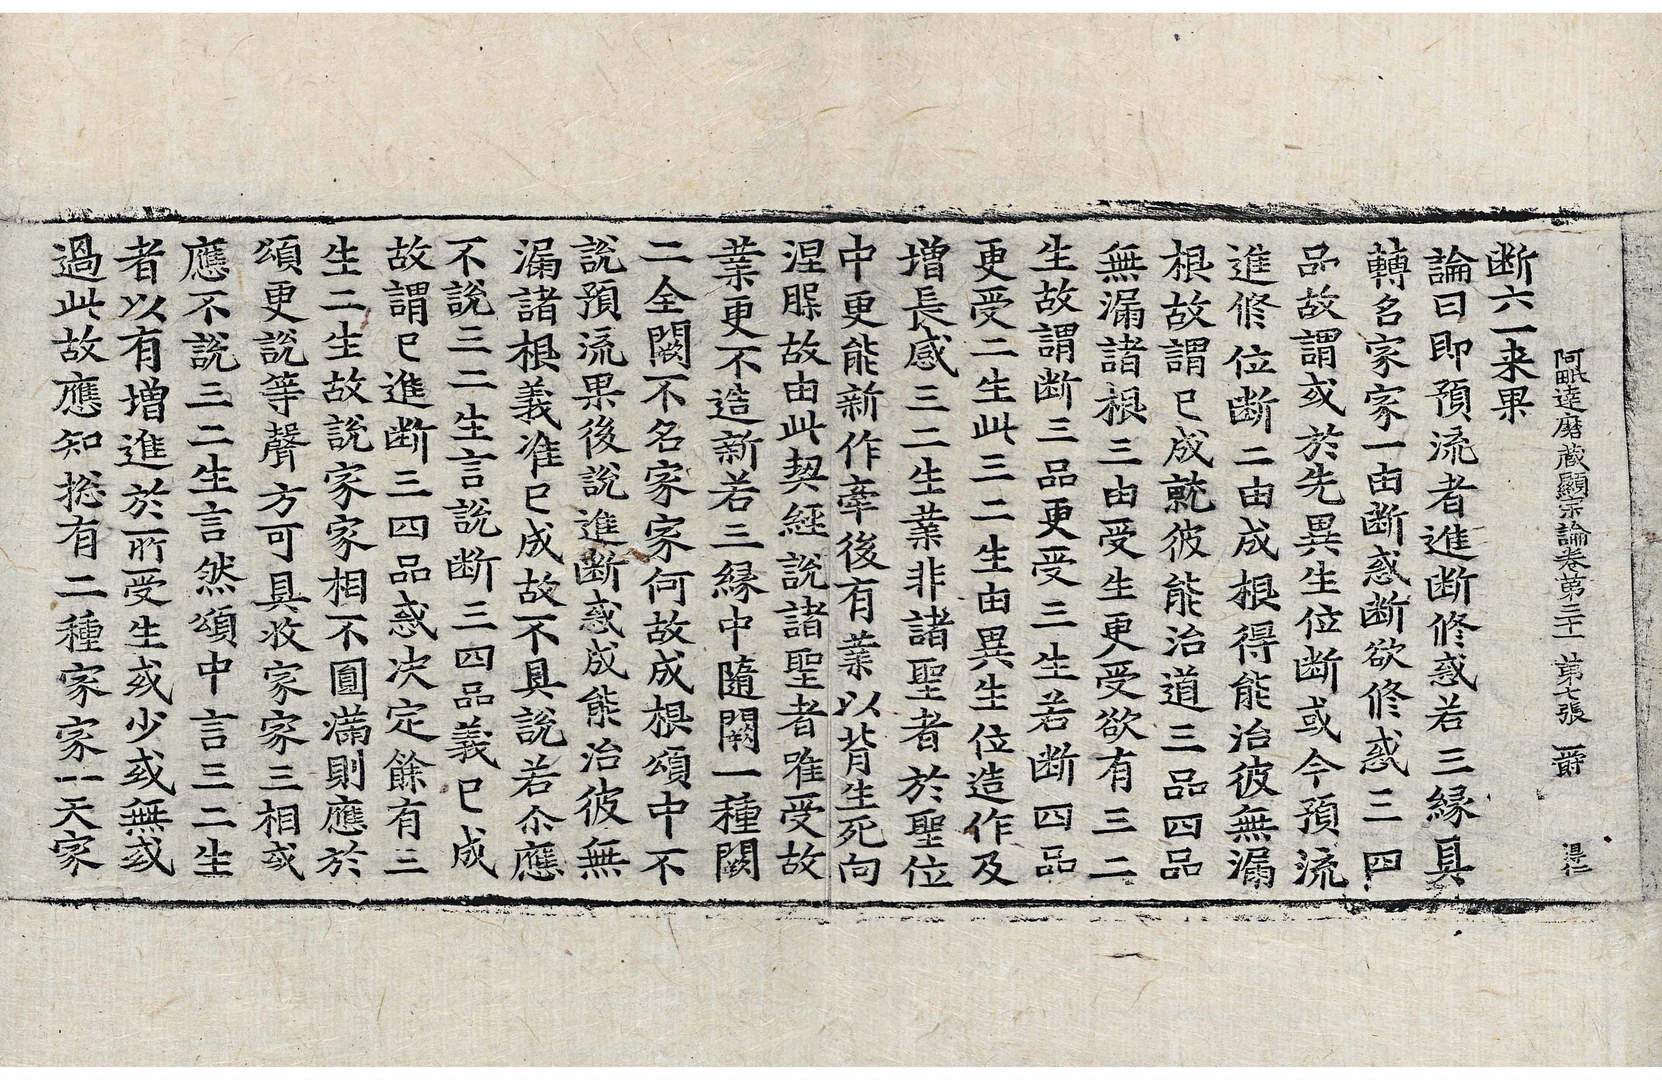 阿毗達磨藏顯宗論卷第三十一　第七張　爵　得仁
断六一来果
論曰即預流者進断修惑若三緣具
轉名家家一由断惑断欲修惑三四
品故謂或於先異生位断或今預流
進修位断二由成根得能治彼無漏
根故謂已成就彼能治道三品四品
無漏諸根三由受生更受欲有三二
生故謂断三品更受三生若断四品
更受二生此三二生由異生位造作及
增長感三二生業非諸聖者於聖位
中更能新作牽後有業以背生死向
涅槃故由此契經說諸聖者唯受故
業更不造新若三緣中隨闕一種闕
二全闕不名家家何故成根頌中不
說預流果後說進断惑成能治彼無
漏諸根義准已成故不具說若尒應
不說三二生言說断三四品義已成
故謂已進断三四品惑决定餘有三
生二生故說家家相不圓滿則應於
頌更說等聲方可具收家家三相或
應不說三二生言然頌中言三二生
者以有增進於所受生或少或無或
過此故應知捴有二種家家一天家